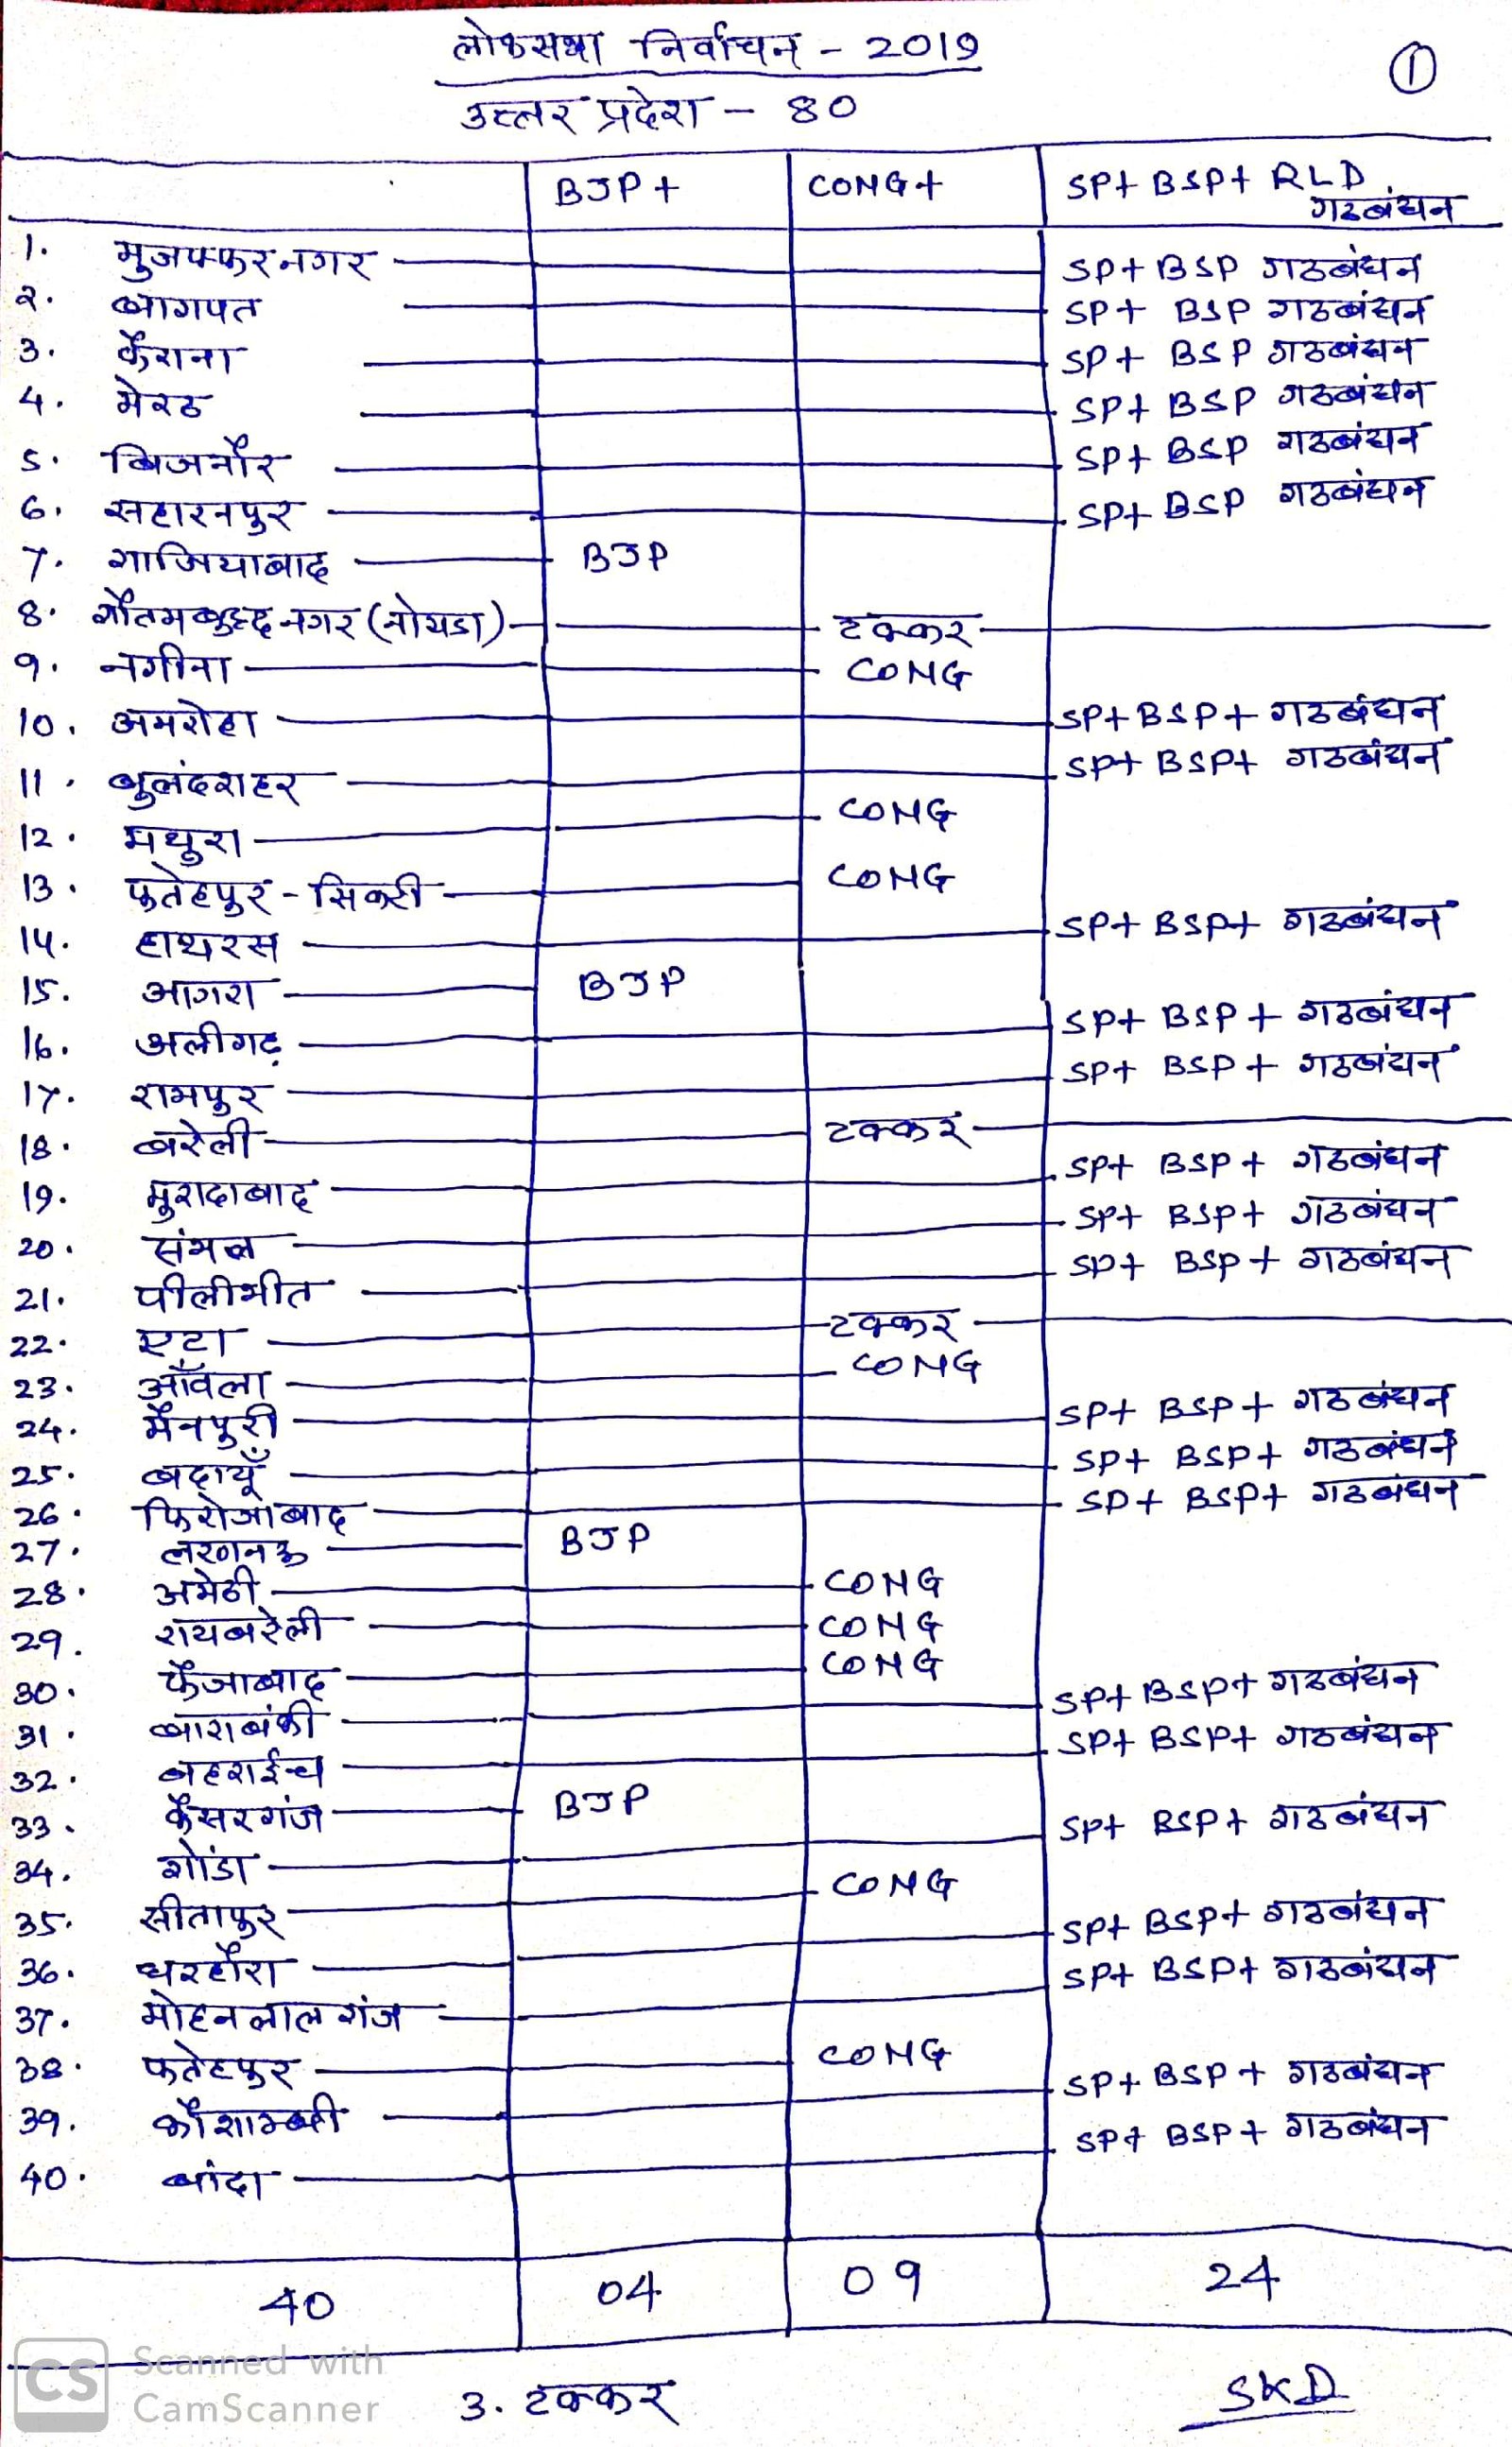 लोकसभा निर्वाचन - 2019
①
उत्तर प्रदेश - 80
BJP + CONG + SP+ BSP+ RLD गठबंधन
1. मुजफ्फरनगर SP+BSP गठबंधन
2. बागपत SP+ BSP गठबंधन
3. कैराना SP+ BSP गठबंधन
4. मेरठ SP+ BSP गठबंधन
5. बिजनौर SP+ BSP गठबंधन
6. सहारनपुर SP+ BSP गठबंधन
7. गाजियाबाद BJP
8. गौतमबुद्ध नगर (नोयडा) टक्कर
9. नगीना CONG
10. अमरोहा SP+BSP+ गठबंधन
11. बुलंदशहर SP+ BSP+ गठबंधन
12. मथुरा CONG
13. फतेहपुर - सिकरी CONG
14. हाथरस SP+ BSP+ गठबंधन
15. आगरा BJP
16. अलीगढ़ SP+ BSP + गठबंधन
17. रामपुर SP+ BSP + गठबंधन
18. बरेली टक्कर
19. मुरादाबाद SP+ BSP + गठबंधन
20. संभल SP+ BSP+ गठबंधन
21. पीलीभीत SP+ BSP + गठबंधन
22. एटा टक्कर
23. आँवला CONG
24. मैनपुरी SP+ BSP + गठबंधन
25. बदायूँ SP+ BSP+ गठबंधन
26. फिरोजाबाद SP+ BSP+ गठबंधन
27. लखनऊ BJP
28. अमेठी CONG
29. रायबरेली CONG
30. फैजाबाद CONG
31. बाराबंकी SP+ BSP+ गठबंधन
32. बहराईच SP+ BSP+ गठबंधन
33. कैसरगंज BJP
34. गोंडा SP+ BSP+ गठबंधन
35. सीतापुर CONG
36. धरहौरा SP+ BSP+ गठबंधन
37. मोहनलाल गंज SP+ BSP+ गठबंधन
38. फतेहपुर CONG
39. कौशाम्बी SP+ BSP + गठबंधन
40. बांदा SP+ BSP + गठबंधन
40 04 09 24
3. टक्कर
SKD
CS Scanned with
CamScanner